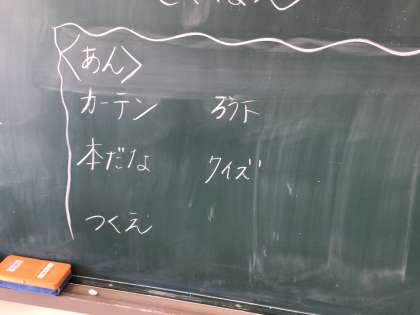 <あん>
カーテン ろう下
本だな クイズ
つくえ